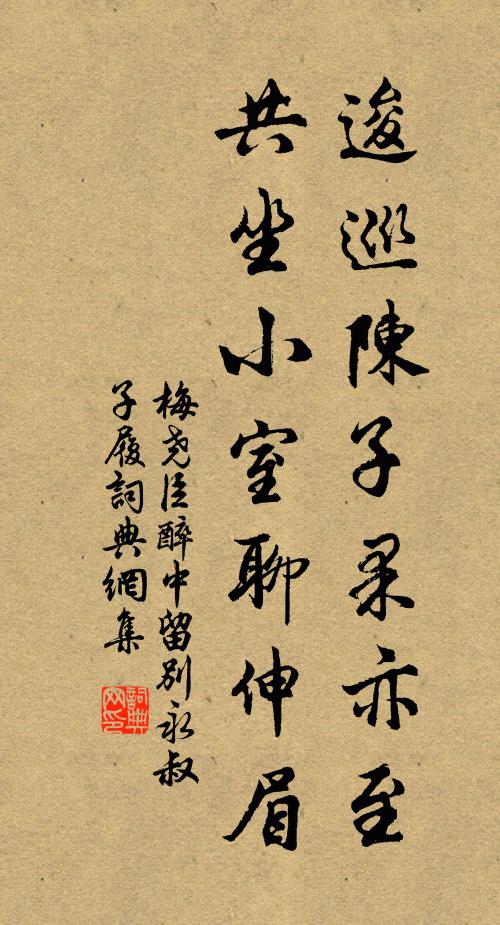 逡巡陳子果亦至
共坐小室聊伸眉
梅尧臣醉中留别永叔
子履詞典網集
詞典
网印